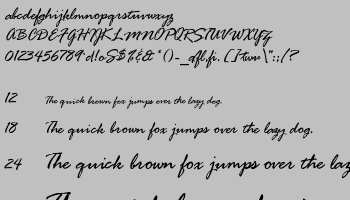 abcdefghijklmnopqrstuvwxyz
ABCDEFGHIJKLMNOPQRSTUVWXYZ
0123456789
12 The quick brown fox jumps over the lazy dog.
18 The quick brown fox jumps over the lazy dog.
24 The quick brown fox jumps over the laz